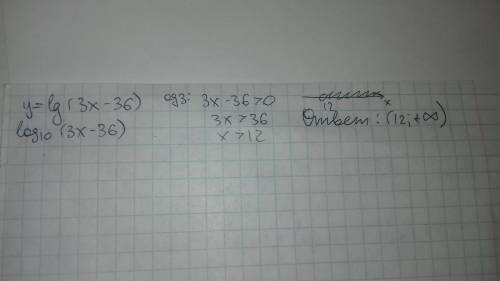 y=lg(3x-36)
log₁₀(3x-36)
одз: 3x-36>0
3x>36
x>12
12 x
Ответ: (12;+∞)